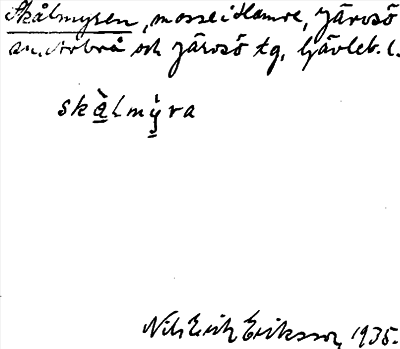 Skålmyren, mosse i Hamre, Järvsö
sn. Arbrå och Järvsö tg. Gävleb. l.
skàlmỳra
Nils Erik Eriksson, 1935.